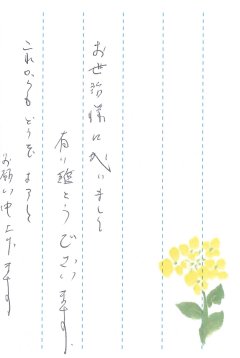 お世話様になりました
有り難とうございます。
これからもどうぞよろしく
お願い申上げます